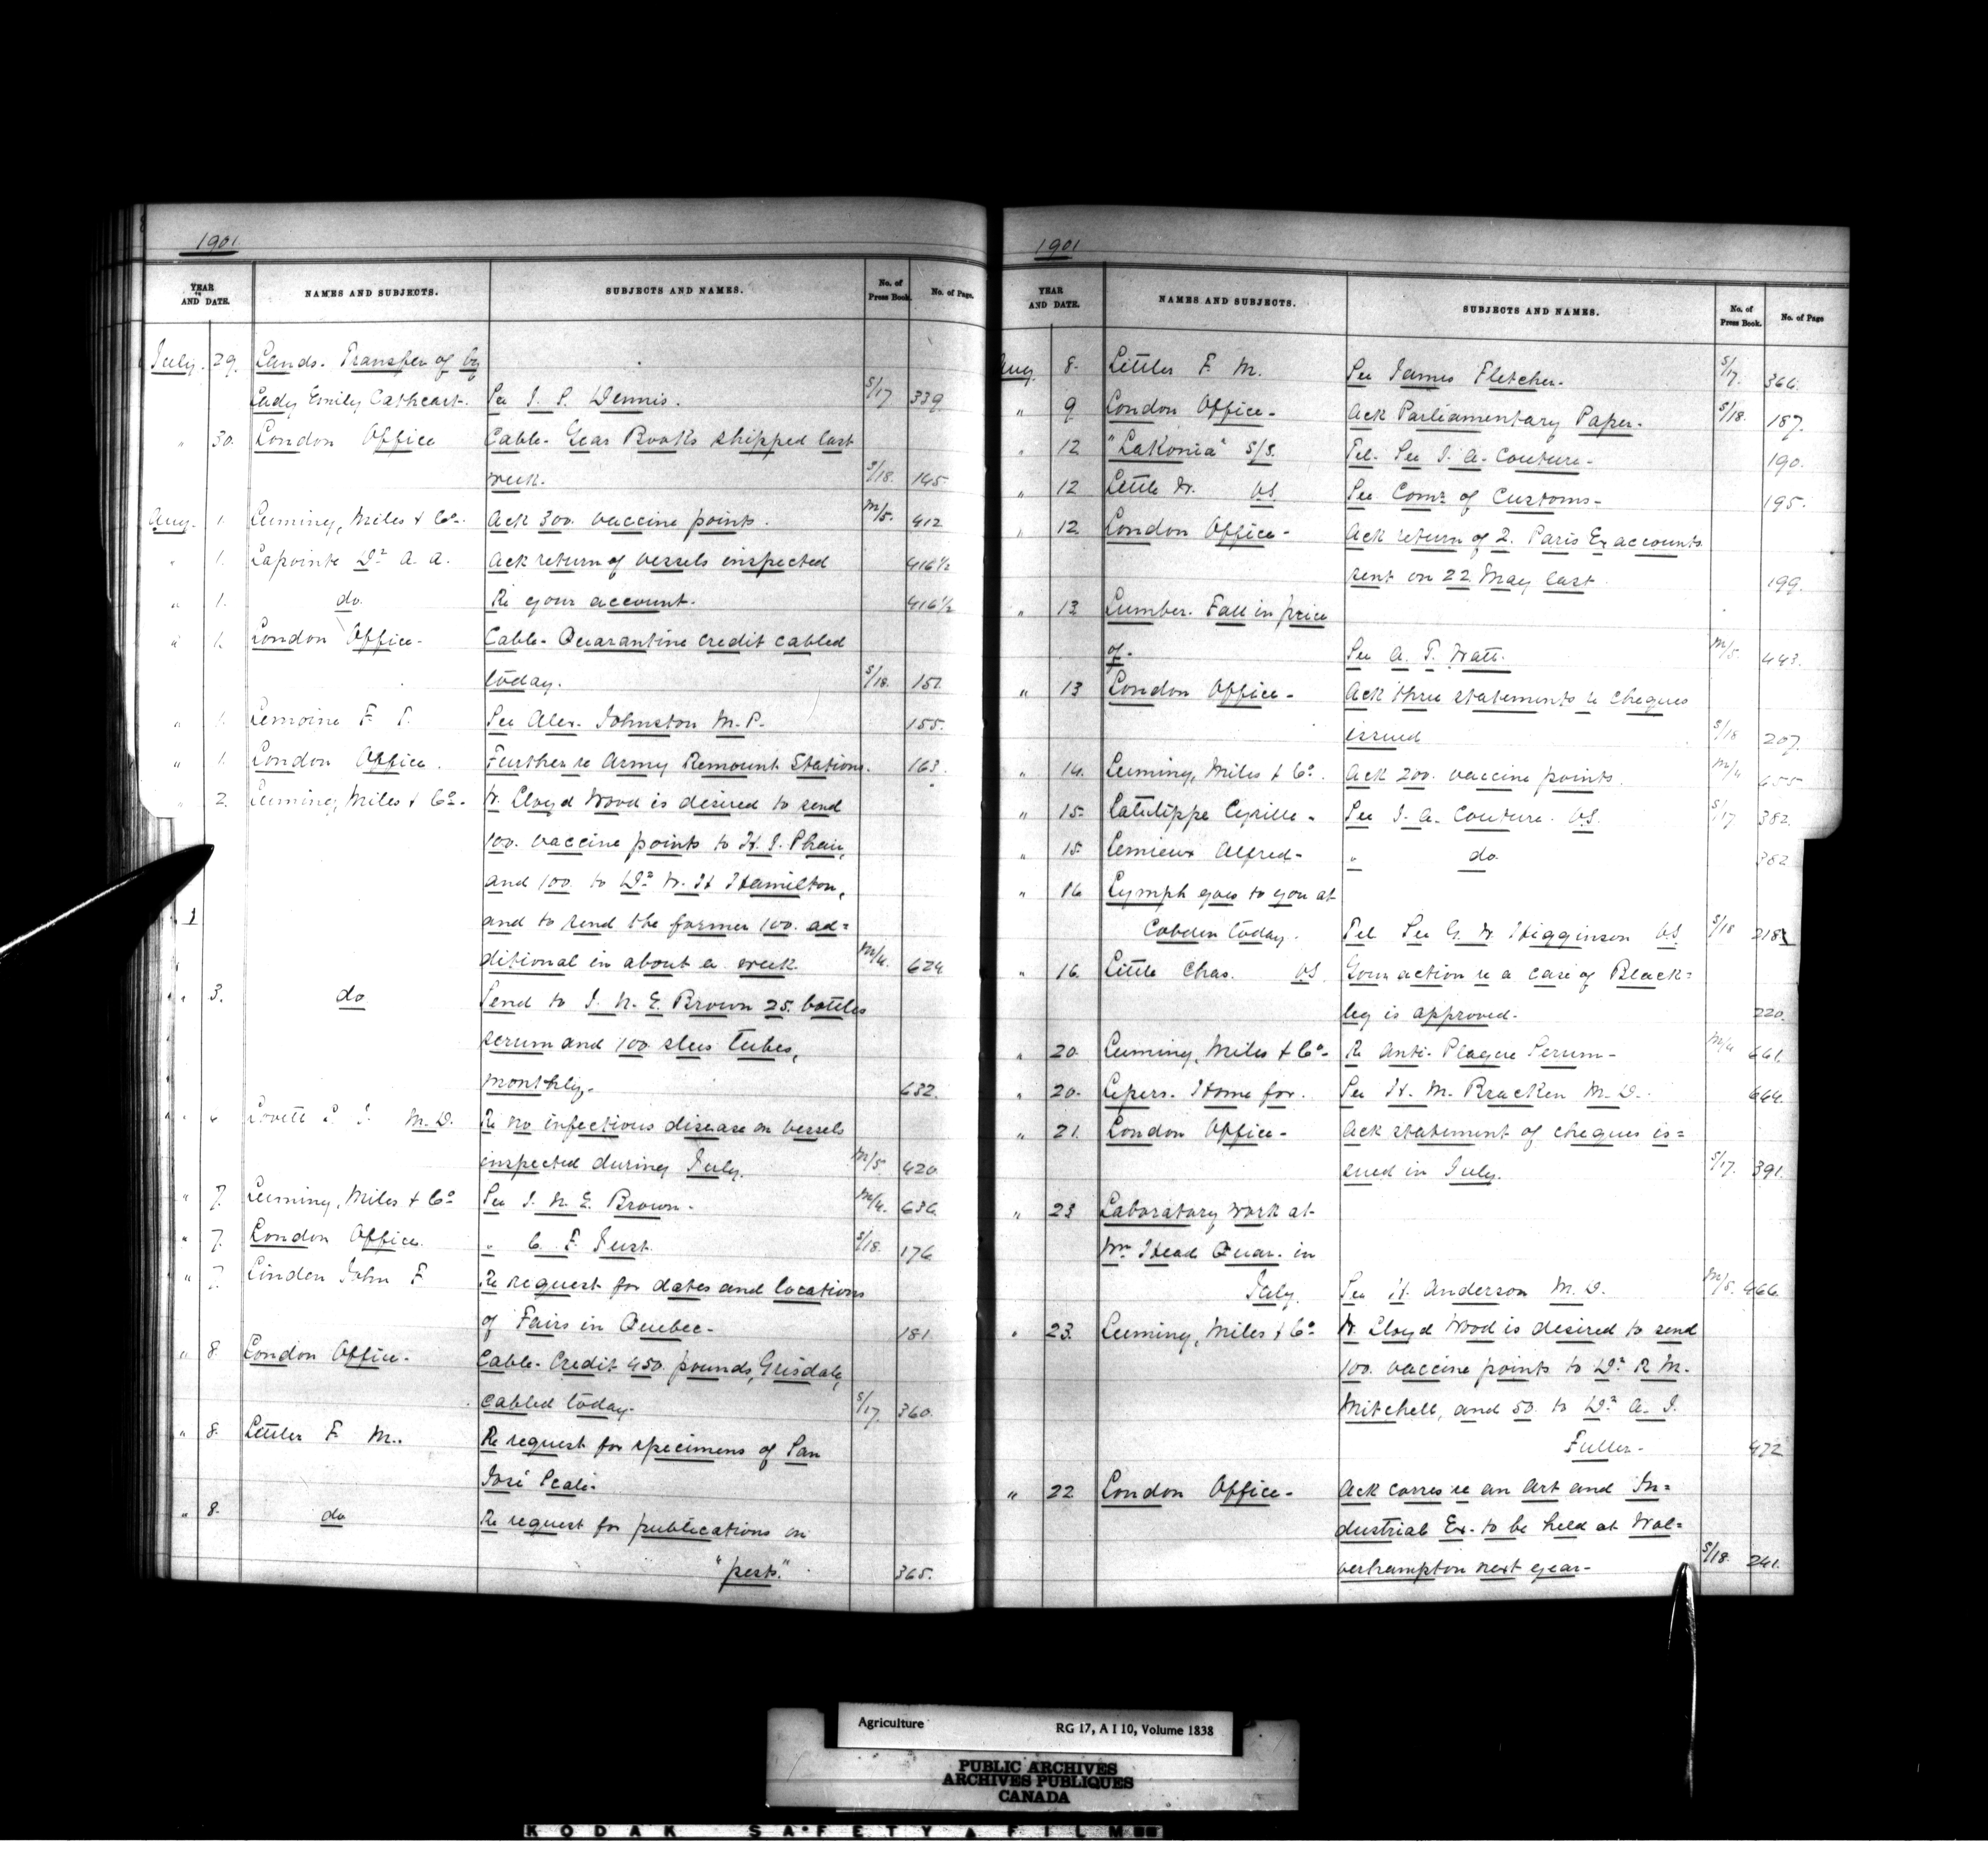 1901
YEAR AND DATE. NAMES AND SUBJECTS. SUBJECTS AND NAMES. No. of Press Book. No. of Page.
July. 29. Lands. Transfer of by
Lady Emily Cathcart. See J. S. Dennis. S/17 339.
" 30. London Office Cable. Year Books shipped last
week. S/18. 145
Aug. 1. Leeming, Miles & Co. Ack 300. vaccine points. M/5. 412
" 1. Lapointe Dr A. A. Ack return of vessels inspected 416½
" 1. do. Re your account. 416½
" 1. London Office- Cable. Quarantine credit cabled
today. S/18. 151.
" 1. Lemoine F. T. See Alex. Johnston M.P. 155.
" 1. London Office. Further re Army Remount Stations. 163.
" 2. Leeming, Miles & Co. W. Lloyd Wood is desired to send
100. vaccine points to H. J. Phair,
and 100. to Dr W. H Hamilton,
and to send the former 100. ad=
ditional in about a week. M/4. 624
" 3. do Send to J. N. E. Brown 25. bottles
serum and 100. tubes,
monthly. 632.
" " Lovett M.D. Re no infectious disease on vessels
inspected during July. M/5. 420
" 7. Leeming, Miles & Co See J. N. E. Brown. M/4. 636
" 7. London Office. " C. F. Just. S/18. 176
" 7. Linden John F Re request for dates and locations
of Fairs in Quebec. 181
" 8. London Office. Cable. Credit 450. pounds, Grisdale,
cabled today. S/17. 360.
" 8. Littler F. M. Re request for specimens of San
José Scale.
" 8. do Re request for publications on
"pests." 365.
1
1901
YEAR AND DATE. NAMES AND SUBJECTS. SUBJECTS AND NAMES. No. of Press Book. No. of Page
Aug 8. Littler F. M. See James Fletcher. S/17. 366.
" 9 London Office. Ack Parliamentary Paper. S/18. 187.
" 12 "Lakonia" S/S. Tel. See J. A. Couture. 190.
" 12 Little W. VS. See Comr of Customs. 195.
" 12. London Office. Ack return of 2. Paris Ex accounts
sent on 22 May last. 199.
" 13 Lumber. Fall in price
of. See A. T. Watt. M/5. 443.
" 13 London Office. Ack three statements re cheques
issued S/18 207.
" 14. Leeming, Miles & Co. Ack 200. vaccine points. M/4 655
" 15. Latulippe Cyrille. See J. A. Couture. VS. S/17 382.
" 15. Lemieux Alfred. " do. 382
" 16 Lymph goes to you at
Cobden today. Tel See G. W. Higginson VS. S/18 218½
" 16. Little Chas. VS. Your action re a case of Black=
leg is approved. 220.
" 20. Leeming, Miles & Co. Re Anti-Plague Serum. M/4 661.
" 20. Lepers. Home for. See H. M. Bracken M.D. 664.
" 21. London Office. Ack statement of cheques is=
sued in July. S/17. 391.
" 23 Laboratory work at
Wm Head Quar. in
July. See H. Anderson M.D. M/5. 466.
" 23. Leeming, Miles & Co W. Lloyd Wood is desired to send
100. vaccine points to Dr R. M.
Mitchell, and 50. to Dr A. J.
Fuller. 472
" 22. London Office. Ack corres re an Art and In=
dustrial Ex. to be held at Wol=
verhampton next year. S/18. 241.
Agriculture RG 17, A I 10, Volume 1838
PUBLIC ARCHIVES
ARCHIVES PUBLIQUES
CANADA
KODAK SAFETY FILM